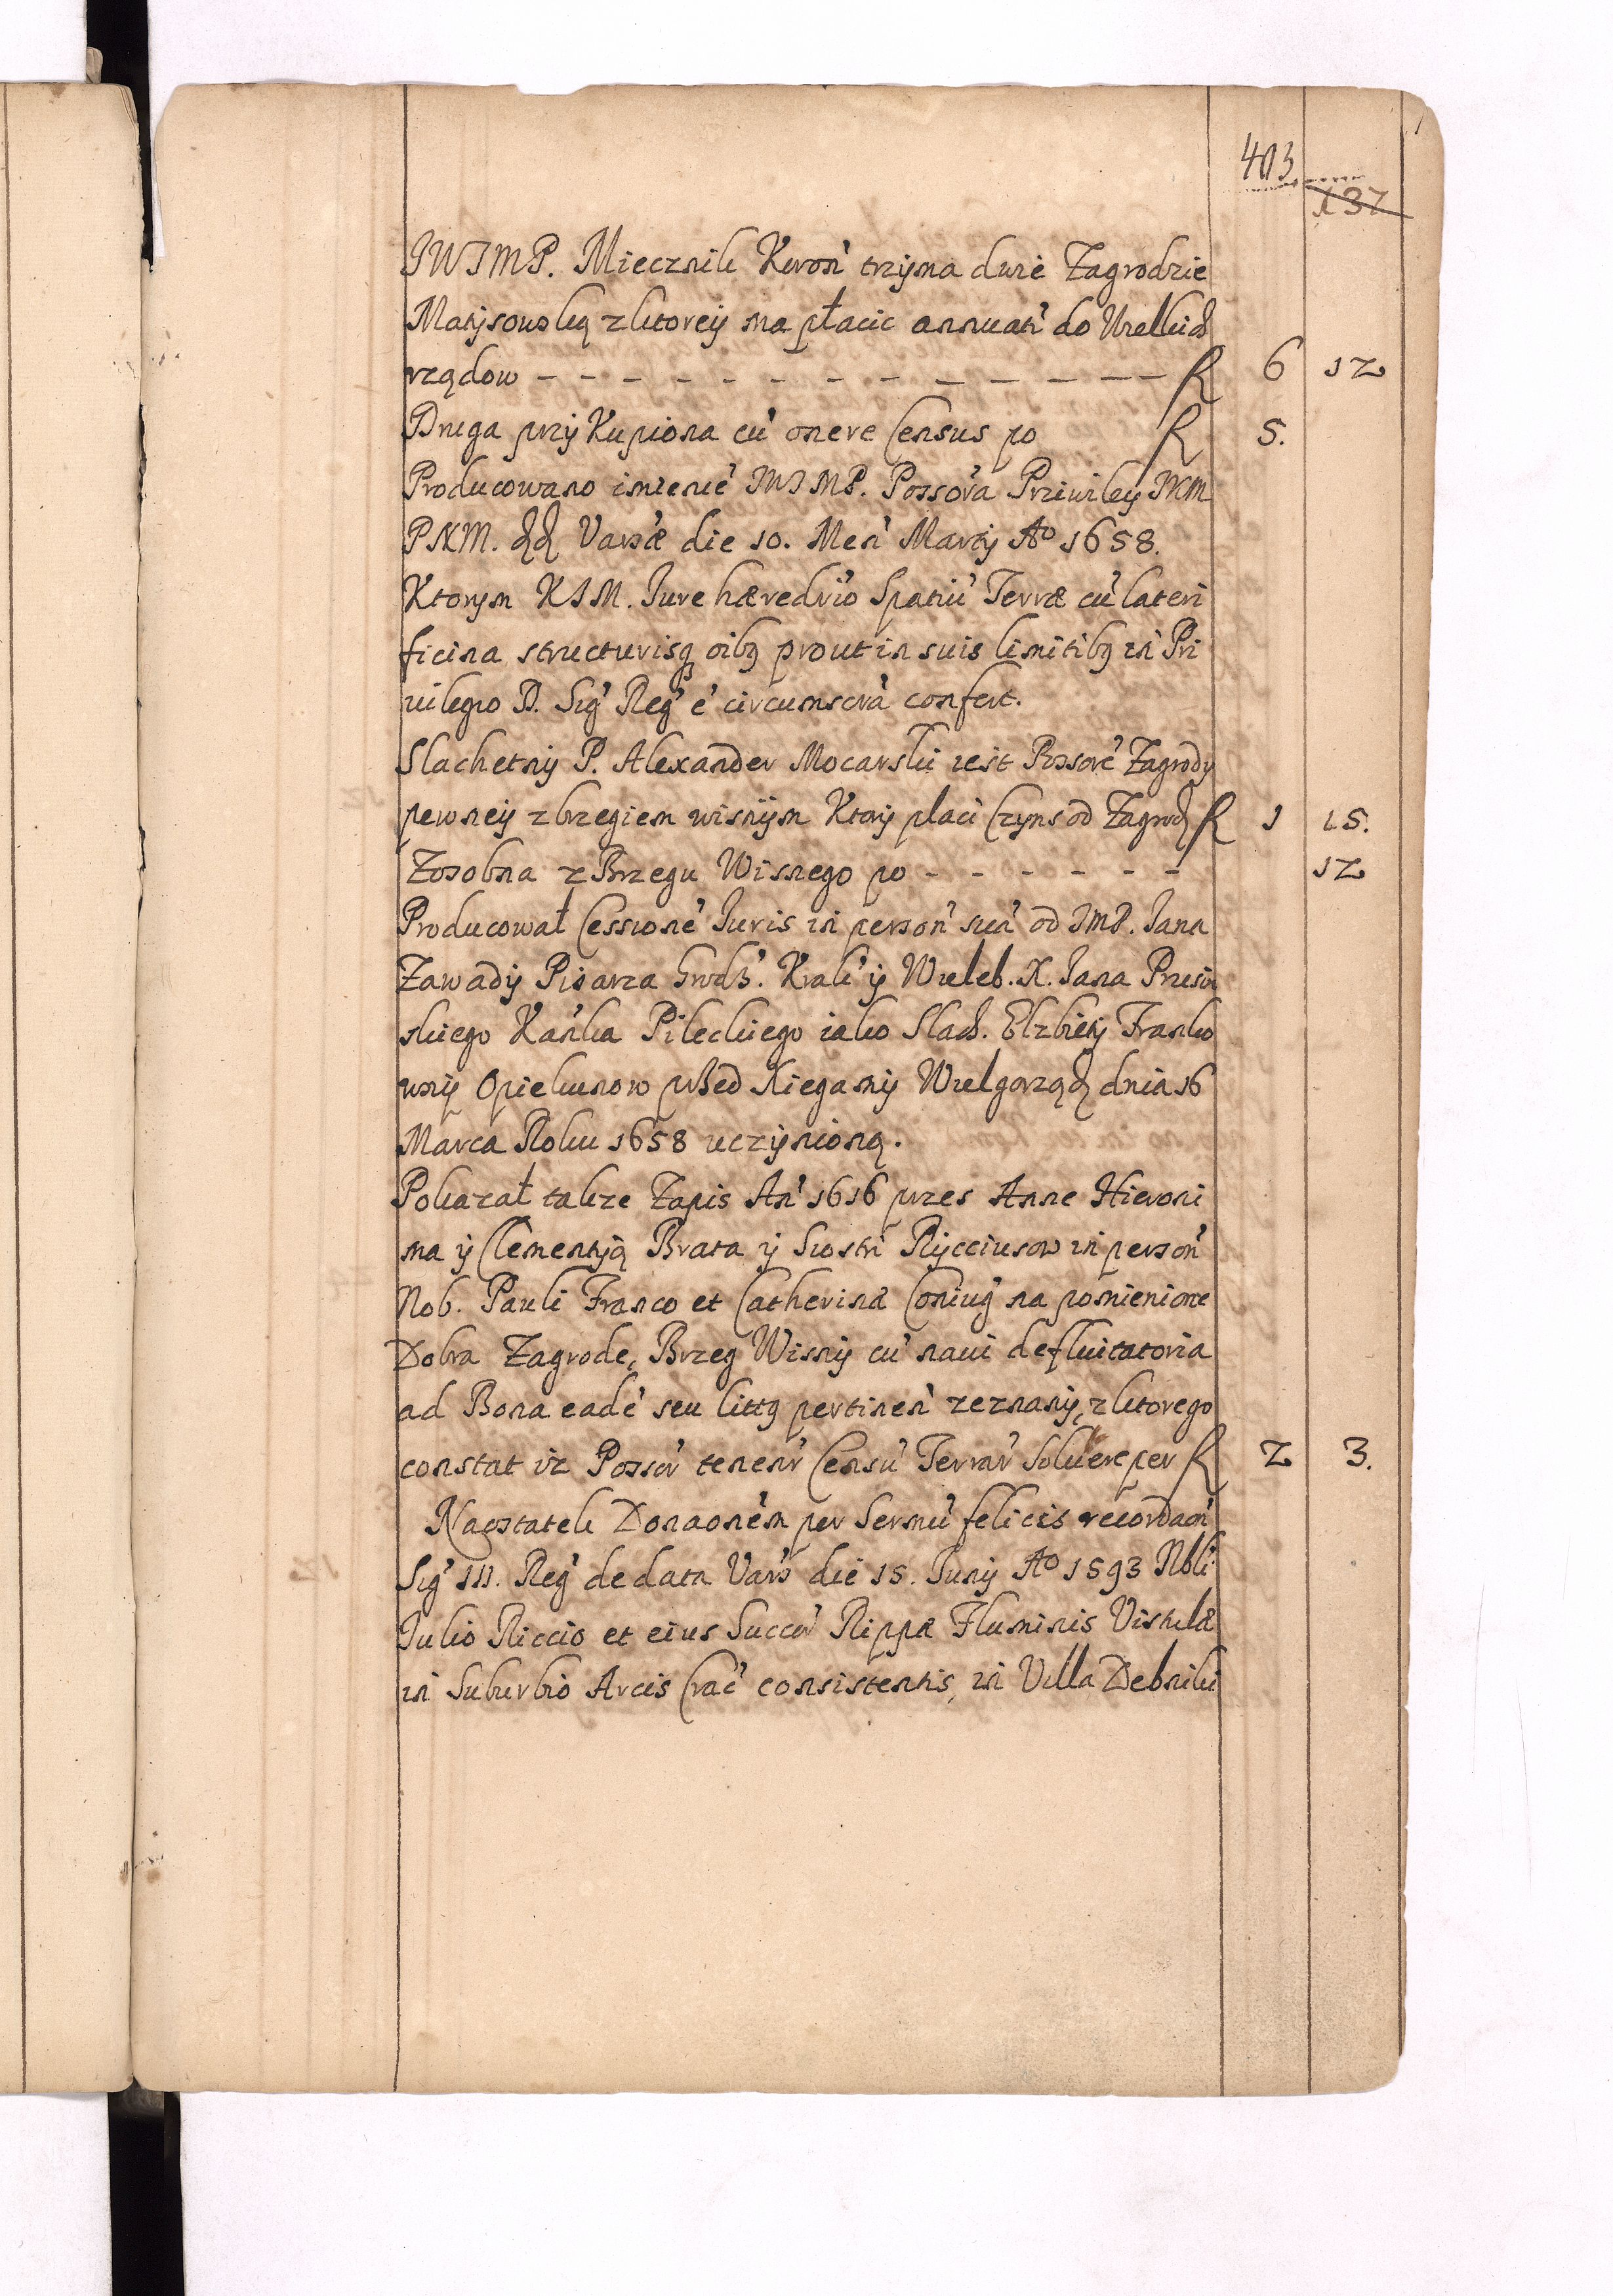 403
137
JWJMP. Miecznik Koroń trzyma dwie Zagrodzie
Matysowską z ktorey ma płacic annuatì do Wielkich
rządow - - - - - - - - - - - - - - fl 6 12
Druga przy Kupiona cū onere Census po fl 5.
Producowano imieniē JWJMP. Possōra Przywiley JKM
PNM. dd Varsae die 10. Meń Martij Ao 1658.
Ktorym KJM. Jure haeredrio Spatiū Terrae cū lateri
ficina structurisq oibg prout in suis limitibg in Pri
uilegio D. Sig Reg ē circumscrā confert.
Slachetny P. Alexander Mocarski iest Possore Zagrody
pewney z brzegiem wisnym Ktory placi Czyns od Zagrod fl 1 15.
Zosobna z Brzegu Wisnego po - - - - - - 12
Producował Cessionē Juris in persoń suā od JMP. Jana
Zawady Pisarza Grodz. Krak y Wieleb. X. Jana
skiego Kańka Pileckiego iako Slach. Elzbiety Franko
wny Opiekunow przed Xiegamy Wielgorząd dnia 16
Marca Roku 1658 uczynioną.
Pokazał takze Zapis Ań 1616 przes Anne Hieroni
ma y Clementyą Brata y Siostri Rycciusow in persoń
Nob. Pauli Franco et Catherina Coniug na pomienione
Dobra Zagrode, Brzeg Wisny cū naui defluitatoria
ad Bona eadē seu littg pertineń zeznany, z ktorego
constat iz Possor tenenr Censū Terrar Soluere per fl 2 3.
Naostatek Donaonem per Sermū felicis recordaoń
Sig III. Reg de data Vars die 15. Juny Ao 1593 Nbli
Julio Riccio et eius Succer Rippae Fluminis Vistulae
in Suburbio Arcis Crac consistentis, in Villa Debniki